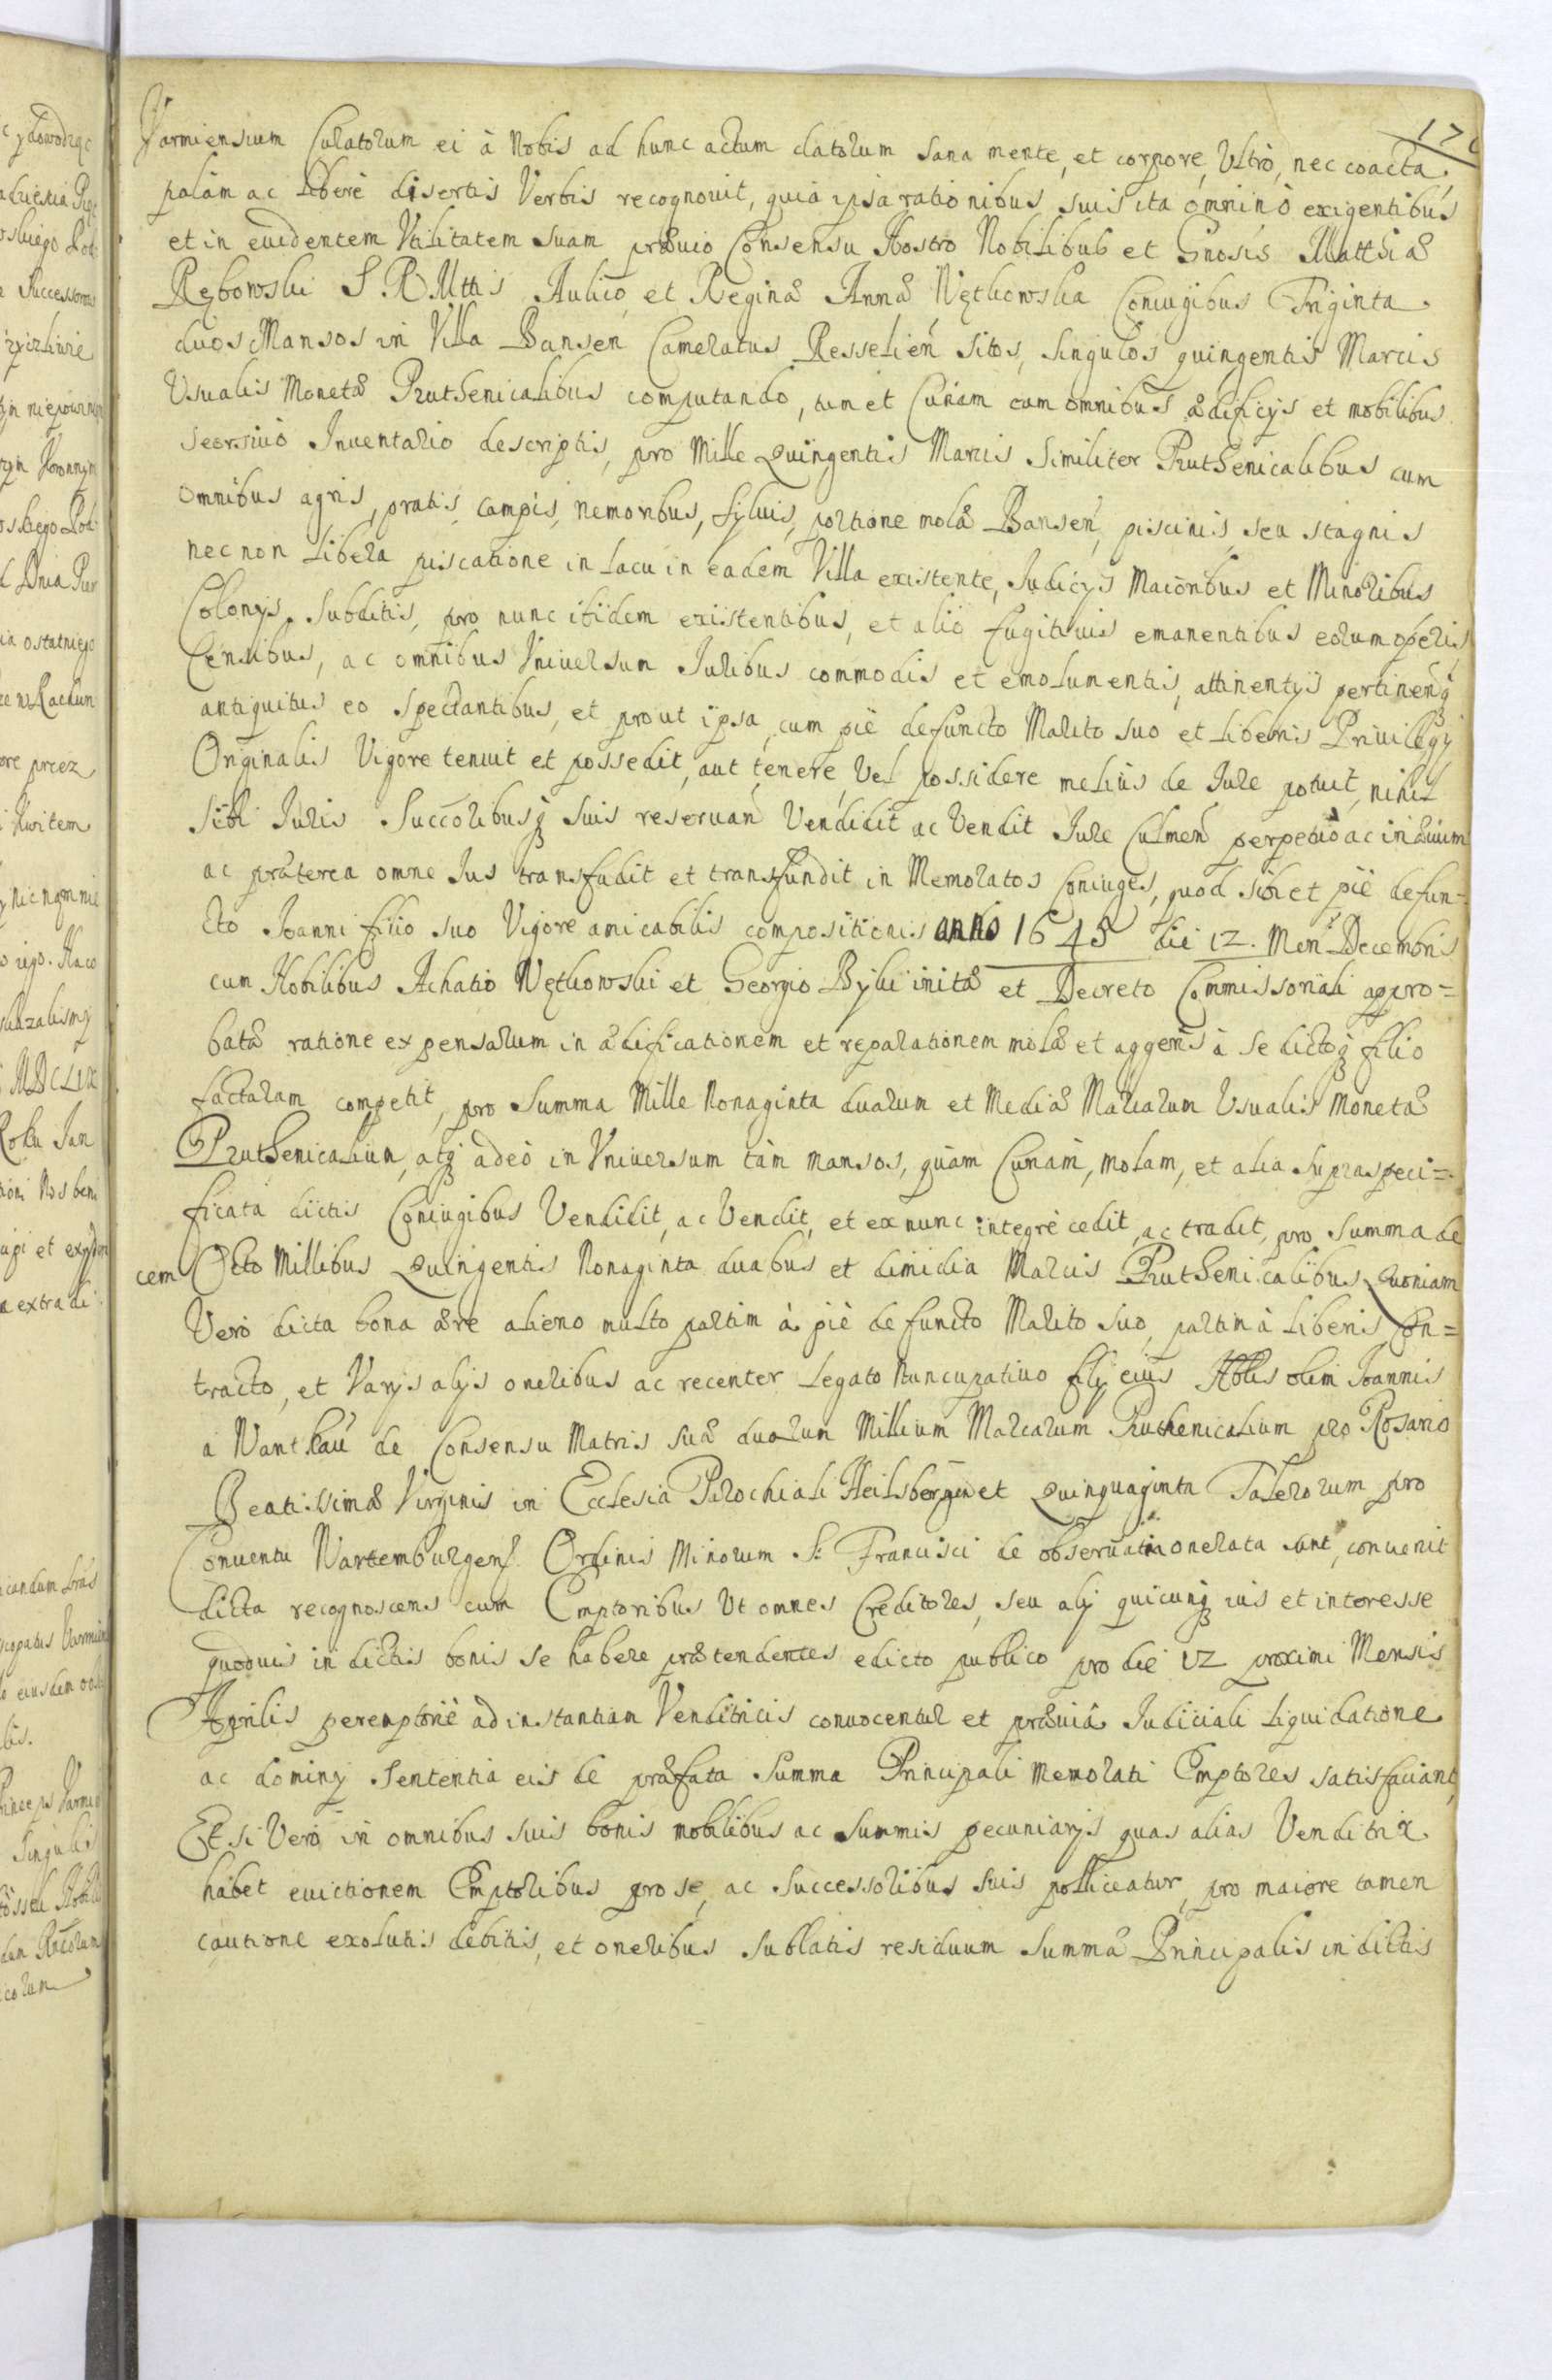 Varmiensium Curatorum ei à Nobis ad hunc actum datorum sana mente, et corpore, Ultrò, nec coacta,
palàm ac liberè disertis Verbis recognouit, quia ipsa rationibus suis ita omninò exigentibus
et in euidentem Vtilitatem suam præuio Consensu Nostro Nobilibus et Gnosis Matthiæ
Rębowski S R Mttis Aulico et Reginæ Annæ Nętkowska Coniugibus Triginta
duos Mansos in Villa Bansen Cameratus Resselien sitos, singulos quingentis Marcis
Vsualis Monetæ Pruthenicalibus computando, tum et Curiam cum omnibus ædificijs et mobilibus
seorsiuo Inuentario descriptis, pro Mille Quingentis Marcis similiter Pruthenicalibus cum
omnibus agris, pratis, campis, nemoribus, syluis, portione molæ Bansen, piscinis, seu stagnis
nec non libera piscatione in lacu in eadem Villa existente, Iudicijs Maioribus et Minoribus
Colonys, subditis, pro nunc ibidem existentibus, et alio fugitiuis emanentibus eorum operis,
Censibus, ac omnibus Vniuersim Iuribus commodis et emolumentis, attinentijs pertinenq
antiquitus eo spectantibus, et prout ipsa, cum piè defuncto Marito suo et liberis Priuilegij
Originalis Vigore tenuit et possedit, aut tenere, Vel possidere melius de Iure potuit, nihil
sibi Iuris Succoribusq suis reseruan Vendidit ac Vendit Iure Culmen perpetuò ac in æuum
ac præterea omne Ius transfudit et transfundit in Memoratos Coniuges, quod sibi et piè defun-
cto Ioanni filio suo Vigore amicabilis compositionis anno 1645 die 12. Men Decembris
cum Nobilibus Achatio Nętkowski et Georgio Bylii initæ et Decreto Commissoriali appro=
batæ ratione expensarum in ædificationem et reparationem molæ et aggeris à se dictoq filio
factarum competit, pro Summa Mille Nonaginta duarum et Mediæ Marcarum Vsualis Monetæ
Pruthenicalium, atq adeò in Vniuersum tàm mansos, quàm Curiam, molam, et alia supraspeci=
ficata dictis Coniugibus Vendidit, ac Vendit, et ex nunc integrè cedit, ac tradit, pro Summa de
cem Octo Millibus Quingentis Nonaginta duabus et dimidia Marcis Pruthenicalibus, Quoniam
Verò dicta bona ære alieno multo partim à piè defuncto Marito suo, partim à liberis con=
tracto, et Varijs alijs oneribus ac recenter Legato Nuncupatiuo filij eius Nblis olim Ioannis
a Nantkau de Consensu Matris suæ duorum Millium Marcarum Pruthenicalium pro Rosario
Beatissimæ Virginis in Ecclesia Parochiali Heilsbergen et Quinquaginta Talerorum pro
Conuentu Wartemburgens Ordinis Minorum S. Francisci de obseruatia onerata sunt, conuenit
dicta recognoscens cum Emptoribus Vt omnes Creditores, seu alij quicunq ius et interesse
quoduis in dictis bonis se habere prætendentes edicto publico pro die 12 proximi Mensis
Aprilis peremptoriè ad instantiam Venditricis conuocentur et præuiâ Iudiciali liquidatione
ac dominij sententia eis de præfata Summa Principali Memorati Emptores satisfaciant,
Et si Verò in omnibus suis bonis mobilibus ac summis pecuniarijs quas alias Venditrix
habet euictionem Emptoribus pro se, ac Successoribus suis polliceatur, pro maiore tamen
cautione exolutis debitis, et oneribus sublatis residuum Summæ Principalis in dictis